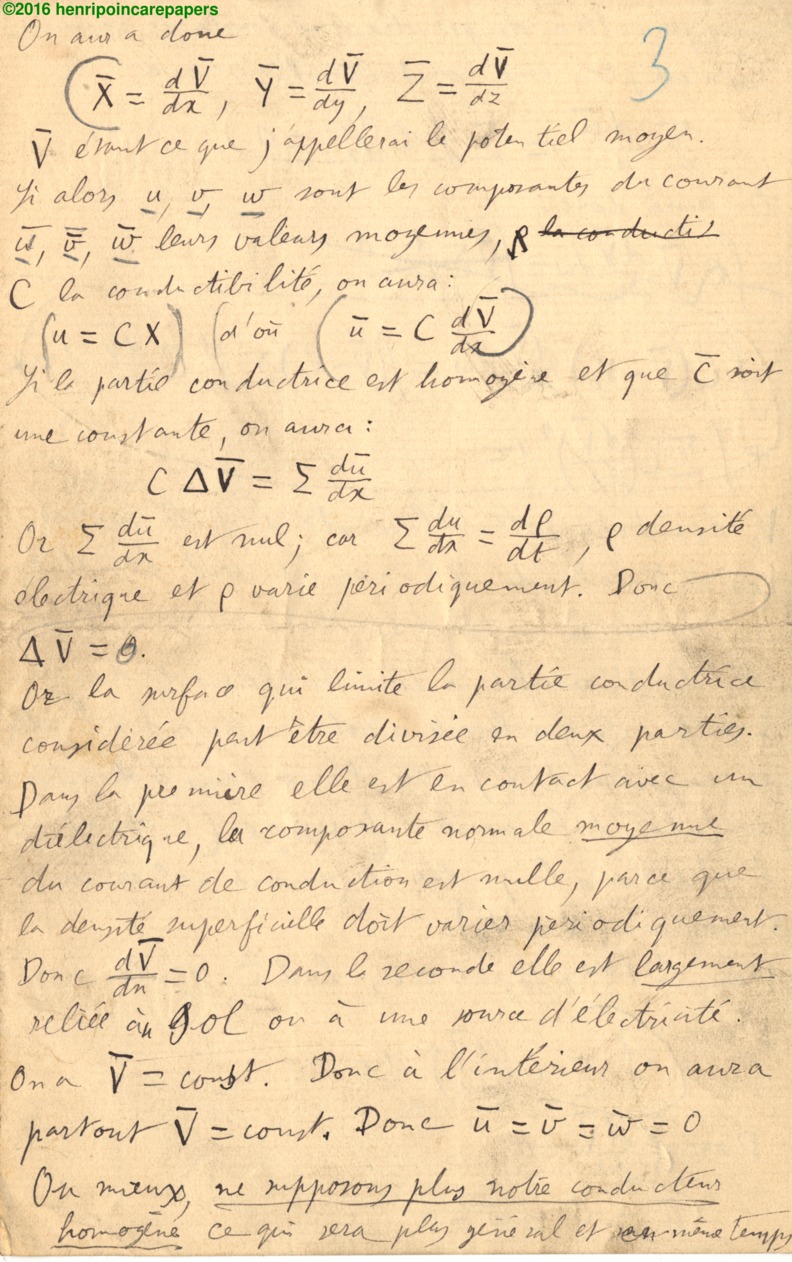 ©2016 henripoincarepapers
On aura donc
3
(X̄ = dV̄/dx, Ȳ = dV̄/dy, Z̄ = dV̄/dz
V̄ étant ce que j'appellerai le potentiel moyen.
Si alors u, v, w sont les composantes du courant
ū, v̄, w̄ leurs valeurs moyennes, la conductib
C la conductibilité, on aura:
(u = CX) (d'où (ū = C dV̄/dx)
Si la partie conductrice est homogène et que C̄ soit
une constante, on aura:
C ΔV̄ = Σ dū/dx
Or Σ dū/dx est nul; car Σ du/dx = dρ/dt, ρ densité
électrique et ρ varie périodiquement. Donc
ΔV̄ = 0.
Or la surface qui limite la partie conductrice
considérée peut être divisée en deux parties.
Dans la première elle est en contact avec un
diélectrique, la composante normale moyenne
du courant de conduction est nulle, parce que
la densité superficielle doit varier périodiquement.
Donc dV̄/dn = 0. Dans la seconde elle est largement
reliée au sol ou à une source d'électricité.
On a V̄ = const. Donc à l'intérieur on aura
partout V̄ = const. Donc ū = v̄ = w̄ = 0
Ou mieux, ne supposons plus notre conducteur
homogène ce qui sera plus général et en même temps